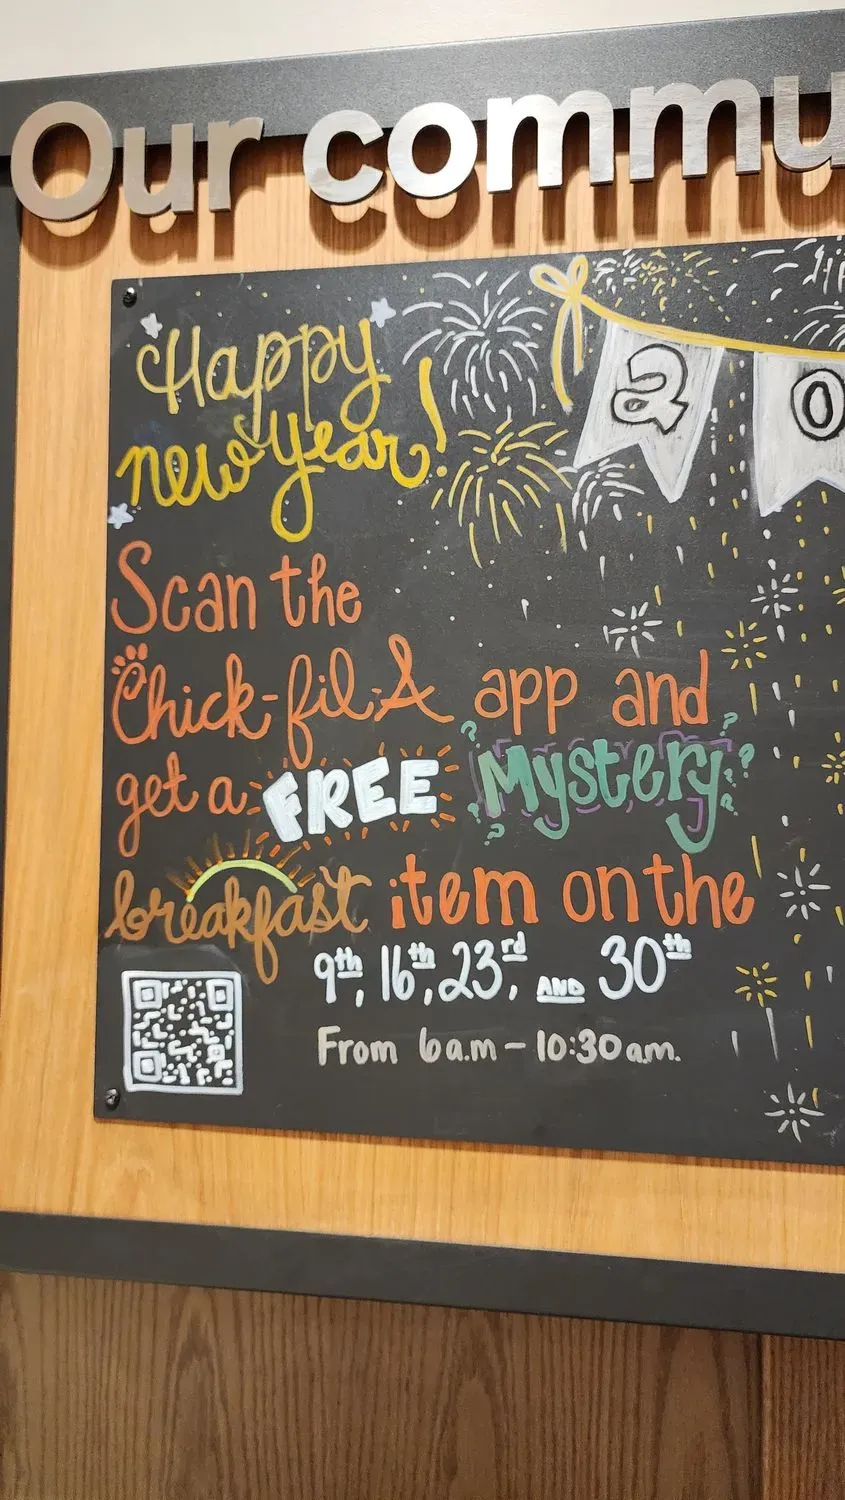 Our commu
Happy
new year!
2 0
Scan the
Chick-fil-A app and
get a FREE Mystery
breakfast item on the
9th, 16th, 23rd, AND 30th
From 6a.m - 10:30am.